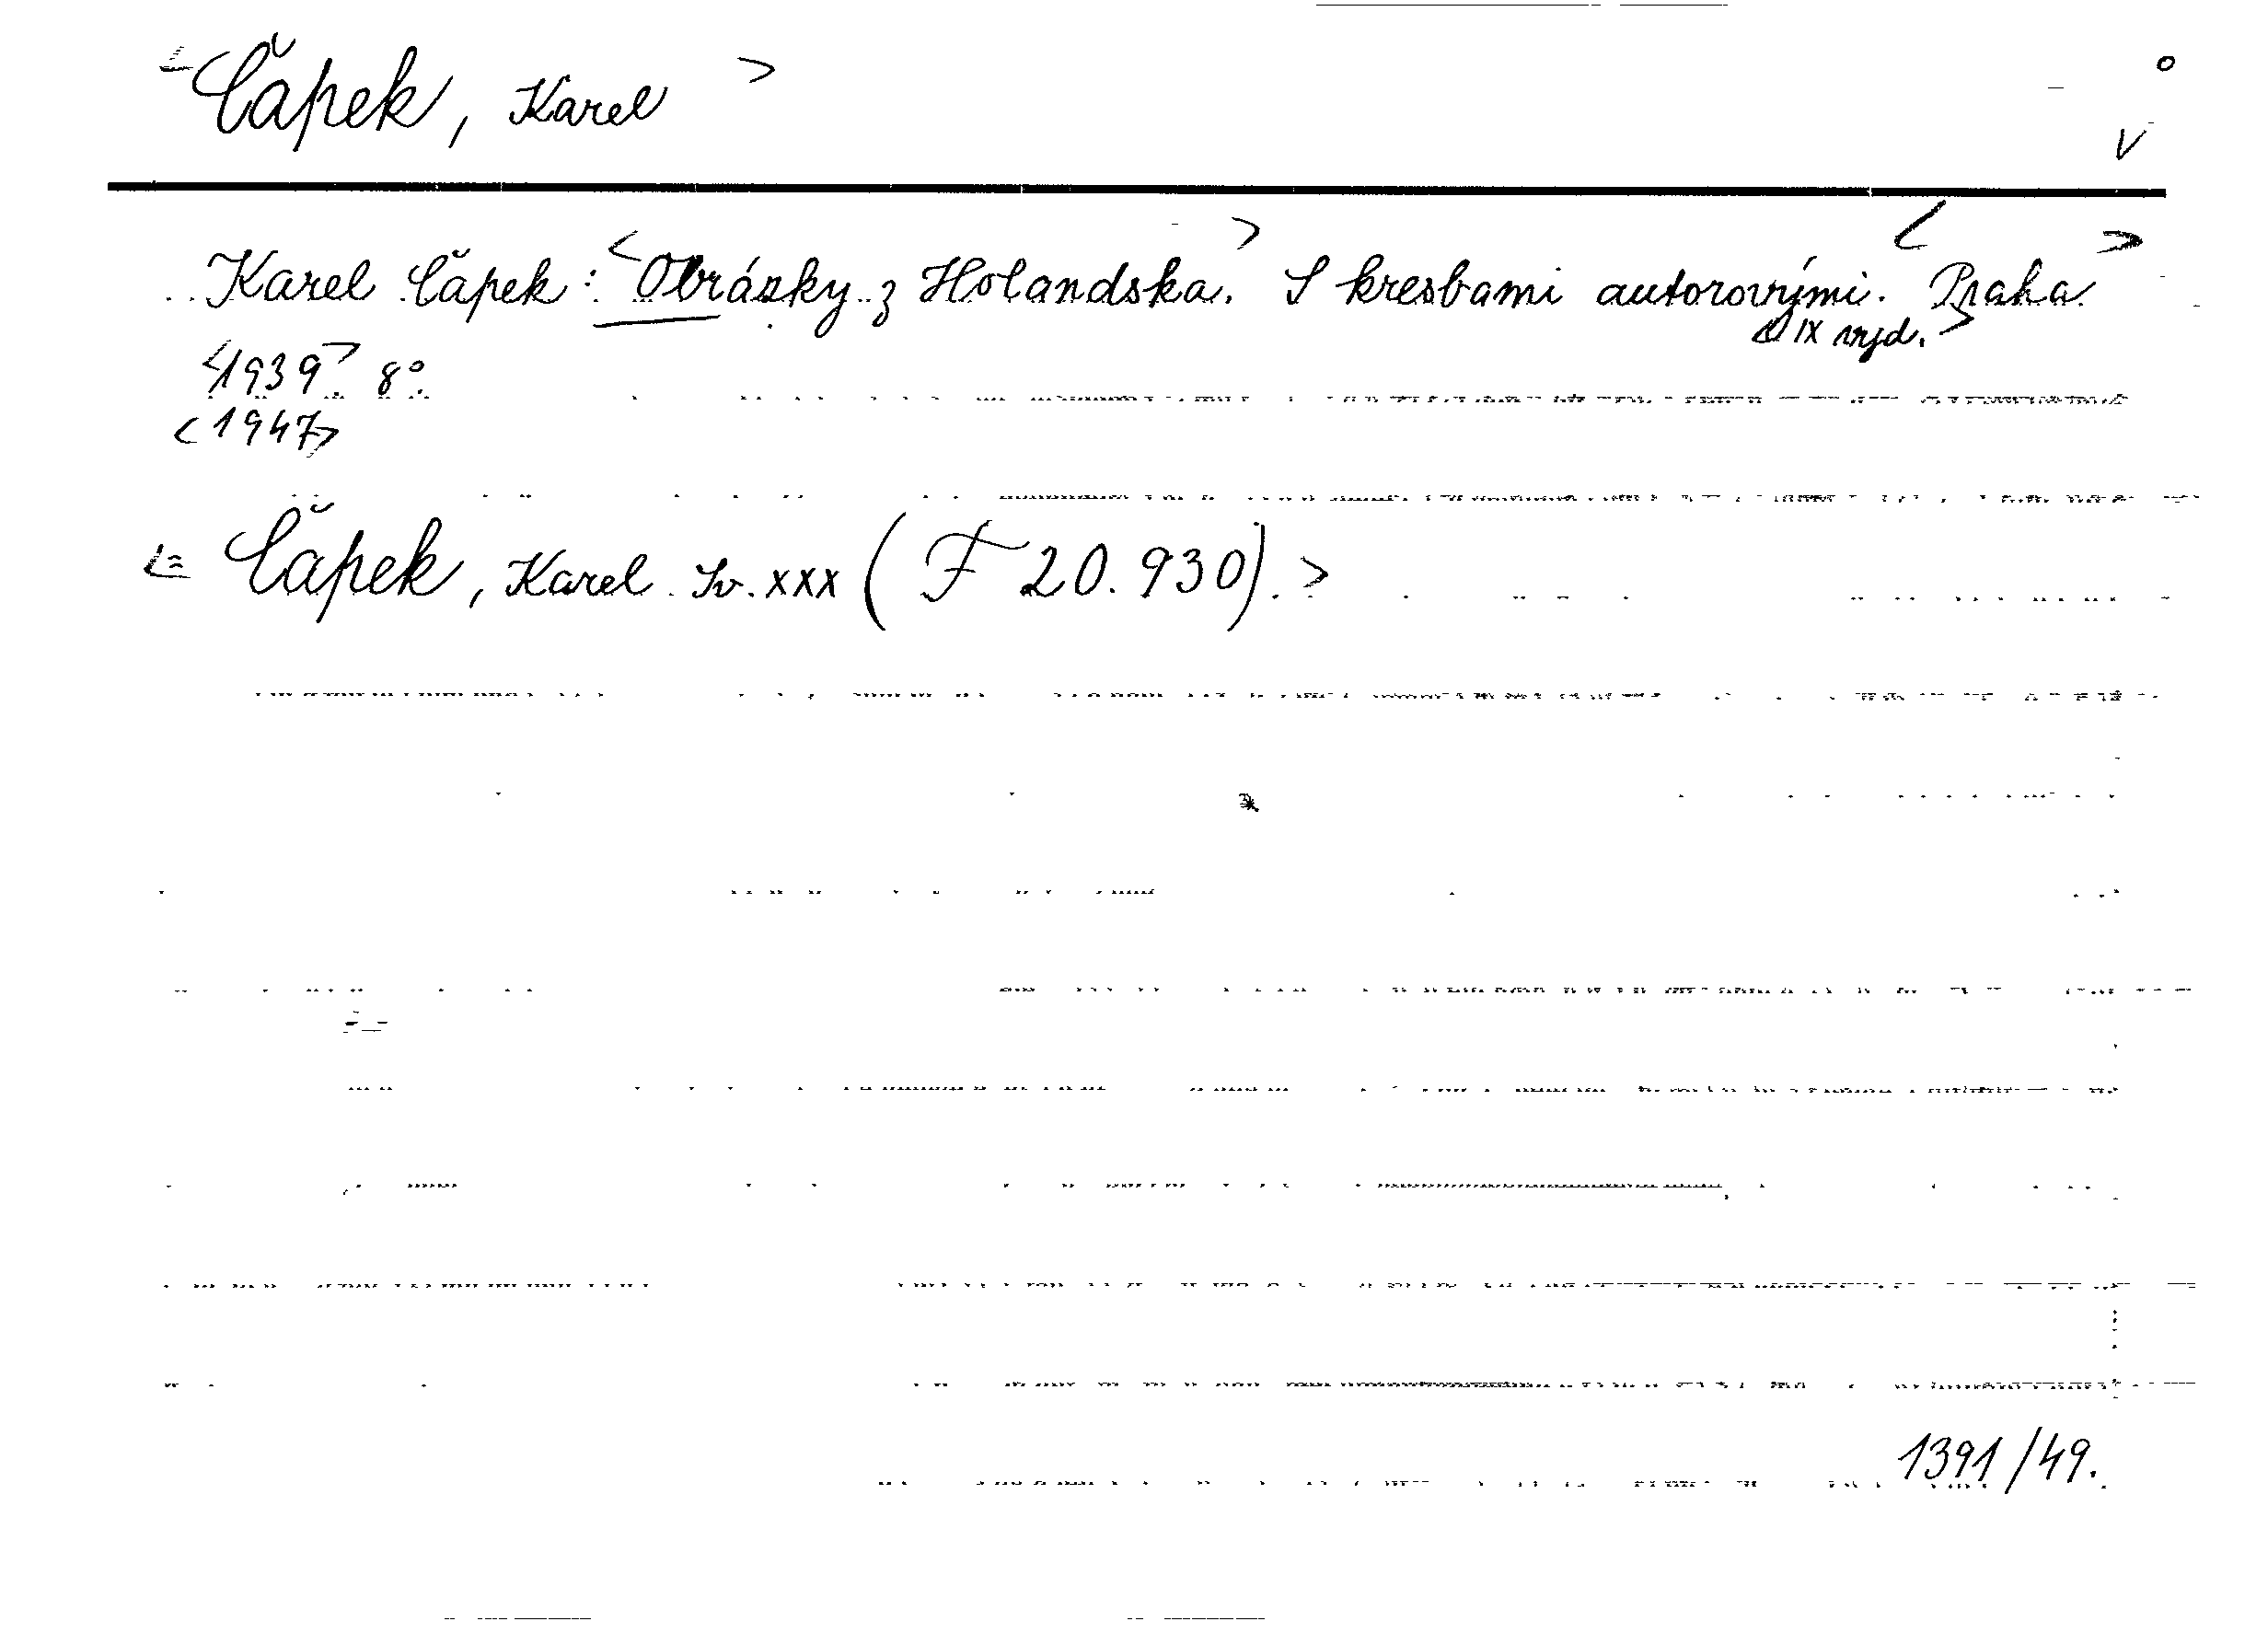 <Čapek, Karel>
o
V
Karel Čapek: <Obrázky z Holandska.> S kresbami autorovými. <Praha>
<IX vyd.>
<1939.> 8°.
<1947>
<= Čapek, Karel. Sv. xxx (F 20.930).>
1391/49.